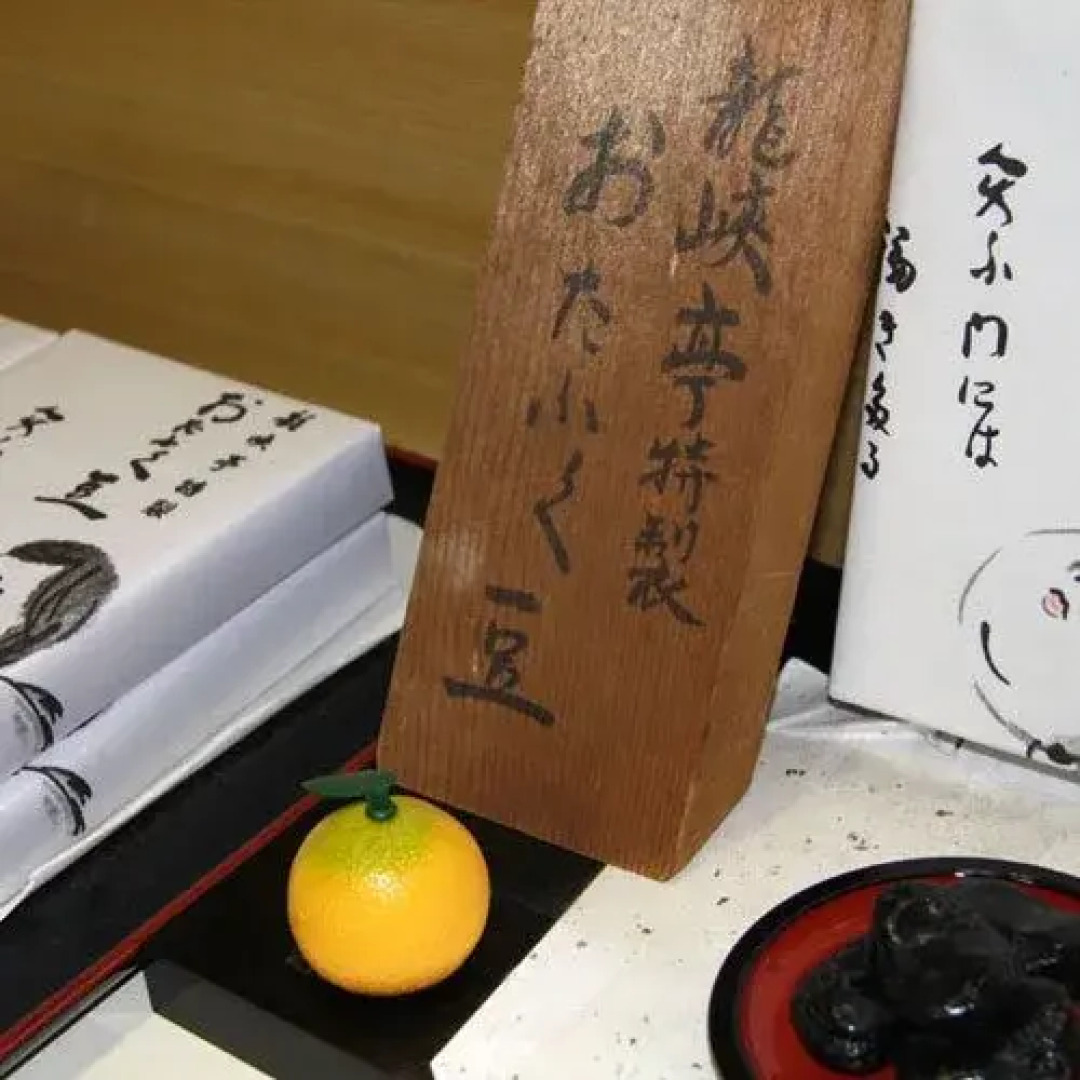 龍峡亭特製
おたふく豆
笑ふ門には
福き多る
おたふく豆